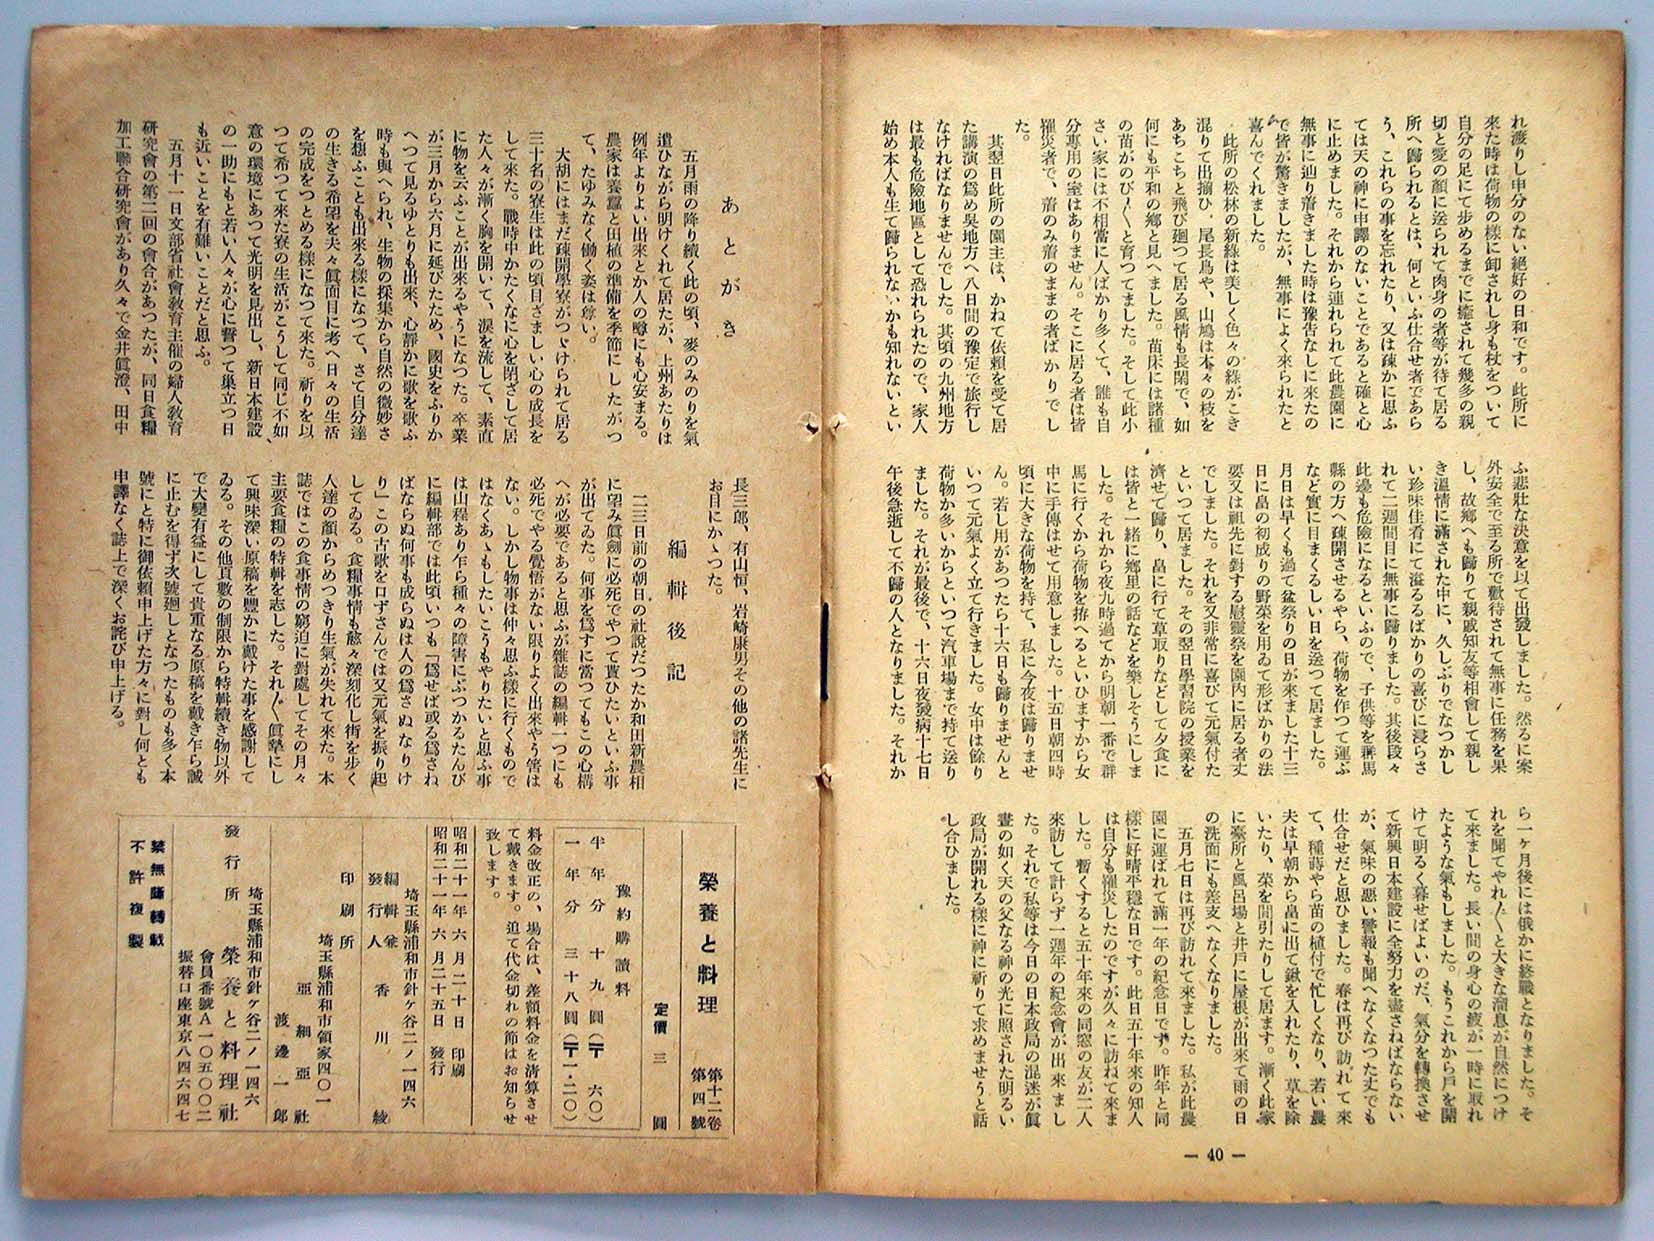 れ渡りし申分のない絶好の日和です。此所に
來た時は荷物の樣に卸されし身も杖をついて
自分の足にて歩めるまでに癒されて幾多の親
切と愛の顏に送られて肉身の者等が待て居る
所へ歸られるとは、何といふ仕合せ者であら
う、これらの事を忘れたり、又は疎かに思ふ
ては天の神に申譯のないことであると確と心
に止めました。それから連れられて此農園に
無事に辿り着きました時は豫吿なしに來たの
で皆が驚きましたが、無事によく來られたと
喜んでくれました。
此所の松林の新綠は美しく色々の綠がこき
混りて出揃ひ、尾長鳥や、山鳩は木々の枝を
あちこちと飛び廻つて居る風情も長閑で、如
何にも平和の鄕と見へました。苗床には諸種
の苗がのび〳〵と育つてました。そして此小
さい家には不相當に人ばかり多くて、誰も自
分專用の室はありません。そこに居る者は皆
罹災者で、着のみ着のままの者ばかりでし
た。
其翌日此所の園主は、かねて依賴を受て居
た講演の爲め吳地方へ八日間の豫定で旅行し
なければなりませんでした。其頃の九州地方
は最も危險地區として恐れられたので、家人
始め本人も生て歸られないかも知れないとい
ふ悲壯な決意を以て出發しました。然るに案
外安全で至る所で歡待されて無事に任務を果
し、故鄕へも歸りて親戚知友等相會して親し
き溫情に滿された中に、久しぶりでなつかし
い珍味佳肴にて溢るるばかりの喜びに浸らさ
れて二週間目に無事に歸りました。其後段々
此邊も危險になるといふので、子供等を群馬
縣の方へ疎開させるやら、荷物を作つて運ぶ
など實に目まぐるしい日を送つて居ました。
月日は早くも過て盆祭りの日が來ました十三
日に畠の初成りの野菜を用ゐて形ばかりの法
要又は祖先に對する慰靈祭を園內に居る者丈
でしました。それを又非常に喜びて元氣付た
といつて居ました。その翌日學習院の授業を
濟せて歸り、畠に行て草取りなどして夕食に
は皆と一緖に鄕里の話などを樂しそうにしま
した。それから夜九時過てから明朝一番で群
馬に行くから荷物を拵へるといひますから女
中に手傳はせて用意しました。十五日朝四時
頃に大きな荷物を持て、私に今夜は歸りませ
ん。若し用があつたら十六日も歸りませんと
いつて元氣よく立て行きました。女中は餘り
荷物か多いからといつて汽車場まで持て送り
ました。それが最後で、十六日夜發病十七日
午後急逝して不歸の人となりました。それか
ら一ヶ月後には俄かに終戰となりました。そ
れを聞てやれ〳〵と大きな溜息が自然につけ
て來ました。長い間の身心の疲が一時に取れ
たような氣もしました。もうこれから戶を開
けて明るく暮せばよいのだ、氣分を轉換させ
て新興日本建設に全努力を盡さねばならない
が、氣味の惡い警報も聞へなくなつた丈でも
仕合せだと思ひました。春は再び訪れて來
て、種蒔やら苗の植付で忙しくなり、若い農
夫は早朝から畠に出て鍬を入れたり、草を除
いたり、菜を間引たりして居ます。漸く此家
に臺所と風呂場と井戶に屋根が出來て雨の日
の洗面にも差支へなくなりました。
五月七日は再び訪れて來ました。私が此農
園に運ばれて滿一年の紀念日です。昨年と同
樣に好晴平穩な日です。此日五十年來の知人
は自分も罹災したのですが久々に訪ねて來ま
した。暫くすると五十年來の同窓の友が二人
來訪して計らず一週年の紀念會が出來まし
た。それで私等は今日の日本政局の混迷が眞
晝の如く天の父なる神の光に照された明るい
政局が開れる樣に神に祈りて求めませうと話
し合ひました。
— 40 —
あとがき
五月雨の降り續く此の頃、麥のみのりを氣
遣ひながら明けくれて居たが、上州あたりは
例年よりよい出來とか人の噂にも心安まる。
農家は養蠶と田植の準備を季節にしたがつ
て、たゆみなく働く姿は尊い。
大胡にはまだ疎開學寮がつゞけられて居る
三十名の寮生は此の頃目ざましい心の成長を
して來た。戰時中かたくなに心を閉ざして居
た人々が漸く胸を開いて、淚を流して、素直
に物を云ふことが出來るやうになつた。卒業
が三月から六月に延びたため、國史をふりか
へつて見るゆとりも出來、心靜かに歌を歌ふ
時も與へられ、生物の採集から自然の微妙さ
を想ふことも出來る樣になつて、さて自分達
の生きる希望を夫々眞面目に考へ日々の生活
の完成をつとめる樣になつて來た。祈りを以
つて希つて來た寮の生活がこうして同じ不如
意の環境にあつて光明を見出し、新日本建設
の一助にもと若い人々が心に誓つて巢立つ日
も近いことを有難いことだと思ふ。
五月十一日文部省社會敎育主催の婦人敎育
硏究會の第二回の會合があつたが、同日食糧
加工聯合硏究會があり久々で金井眞澄、田中
長三郎、有山恒、岩崎康男その他の諸先生に
お目にかゝつた。
編輯後記
二三日前の朝日の社說だつたか和田新農相
に望み眞劍に必死でやつて貰ひたいといふ事
が出てゐた。何事を爲すに當つてもこの心構
へが必要であると思ふが雜誌の編輯一つにも
必死でやる覺悟がない限りよく出來やう筈は
ない。しかし物事は仲々思ふ樣に行くもので
はなくあゝもしたいこうもやりたいと思ふ事
は山程あり乍ら種々の障害にぶつかるたんび
に編輯部では此頃いつも「爲せば或る爲さね
ばならぬ何事も成らぬは人の爲さぬなりけ
り」この古歌を口ずさんでは又元氣を振り起
してゐる。食糧事情も愈々深刻化し街を步く
人達の顏からめつきり生氣が失れて來た。本
誌ではこの食事情の窮迫に對處してその月々
主要食糧の特輯を志した。それ〳〵眞摯にし
て興味深い原稿を豐かに戴けた事を感謝して
ゐる。その他頁數の制限から特輯續き物以外
で大變有益にして貴重なる原稿を戴き乍ら誠
に止むを得ず次號廻しとなつたものも多く本
號にと特に御依賴申上げた方々に對し何とも
申譯なく誌上で深くお詫び申上げる。
榮養と料理　第十二卷　第四號
定價　三圓
豫約購讀料
半年分　十九圓（〒　六〇）
一年分　三十八圓（〒一・二〇）
料金改正の、場合は、差額料金を淸算させ
て戴きます。迫て代金切れの節はお知らせ
致します。
昭和二十一年六月二十日　印刷
昭和二十一年六月二十五日　發行
埼玉縣浦和市針ヶ谷二ノ一四六
編輯兼發行人　香川綾
埼玉縣浦和市領家四〇一
印刷所　亞細亞社
渡邊一郎
埼玉縣浦和市針ヶ谷二ノ一四六
發行所　榮養と料理社
會員番號Ａ一〇五〇〇二
振替口座東京八四六四七
禁無斷轉載
不許複製